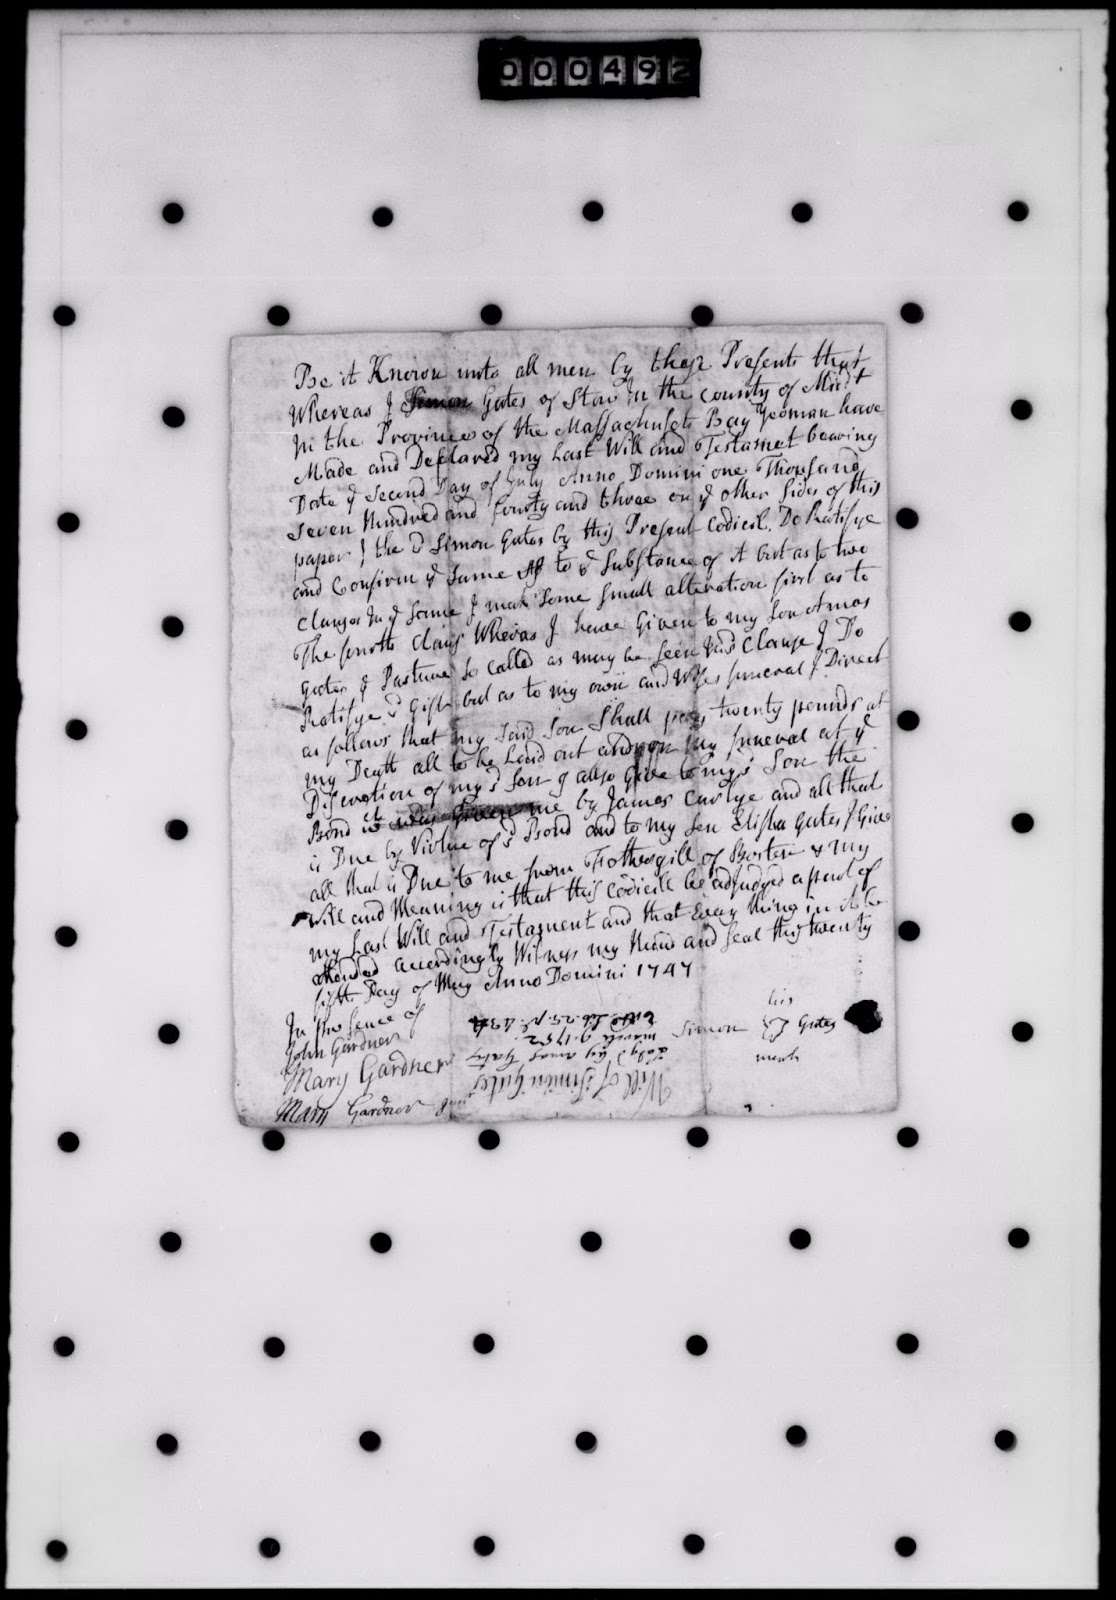 000492
Be it Known unto all men by these Presents that
Whereas I Simon Gates of Stow In the County of Midx
In the Province of the Massachusets Bay yeoman have
Made and Declared my Last Will and Testamet bearing
Date ye second Day of July Anno Domini one Thousand
seven Hundred and fourty and three on ye other sides of this
paper I the sd Simon Gates by this Present Codicil Do Ratifye
and Confirm ye same as to ye substance of it but as to two
Clauses In ye same I mak some small alteration first as to
The fourth Claus Wheras I have Given to my son Amos
Gates ye Pasture so called as may be seen In sd Clause I Do
Ratifye sd Gift but as to my own and Wifes funeral I Direct
as follows that my said son shall pay twenty pounds at
my Death all to be Laid out upon my funeral at ye
Discretion of my sd son I allso Give to my sd son the
Bond Given me by James Carlye and all that
is Due by Virtue of sd Bond and to my son Elisha Gates I Give
all that is Due to me from Fothergill of Boston & my
Will and Meaning is that this Codicill be adjudged a part of
my Last Will and Testament and that Every thing in it be
attended accordingly Witness my Hand and seal this twenty
fifth Day of May Anno Domini 1747
In Presence of
John Gardner
Mary Gardner
Mary Gardner junr
his
Simon Gates
mark
Will of Simon Gates
Lodgd by Amos Gates
March 9. 1752
Entd. Lib. 25. p. 434